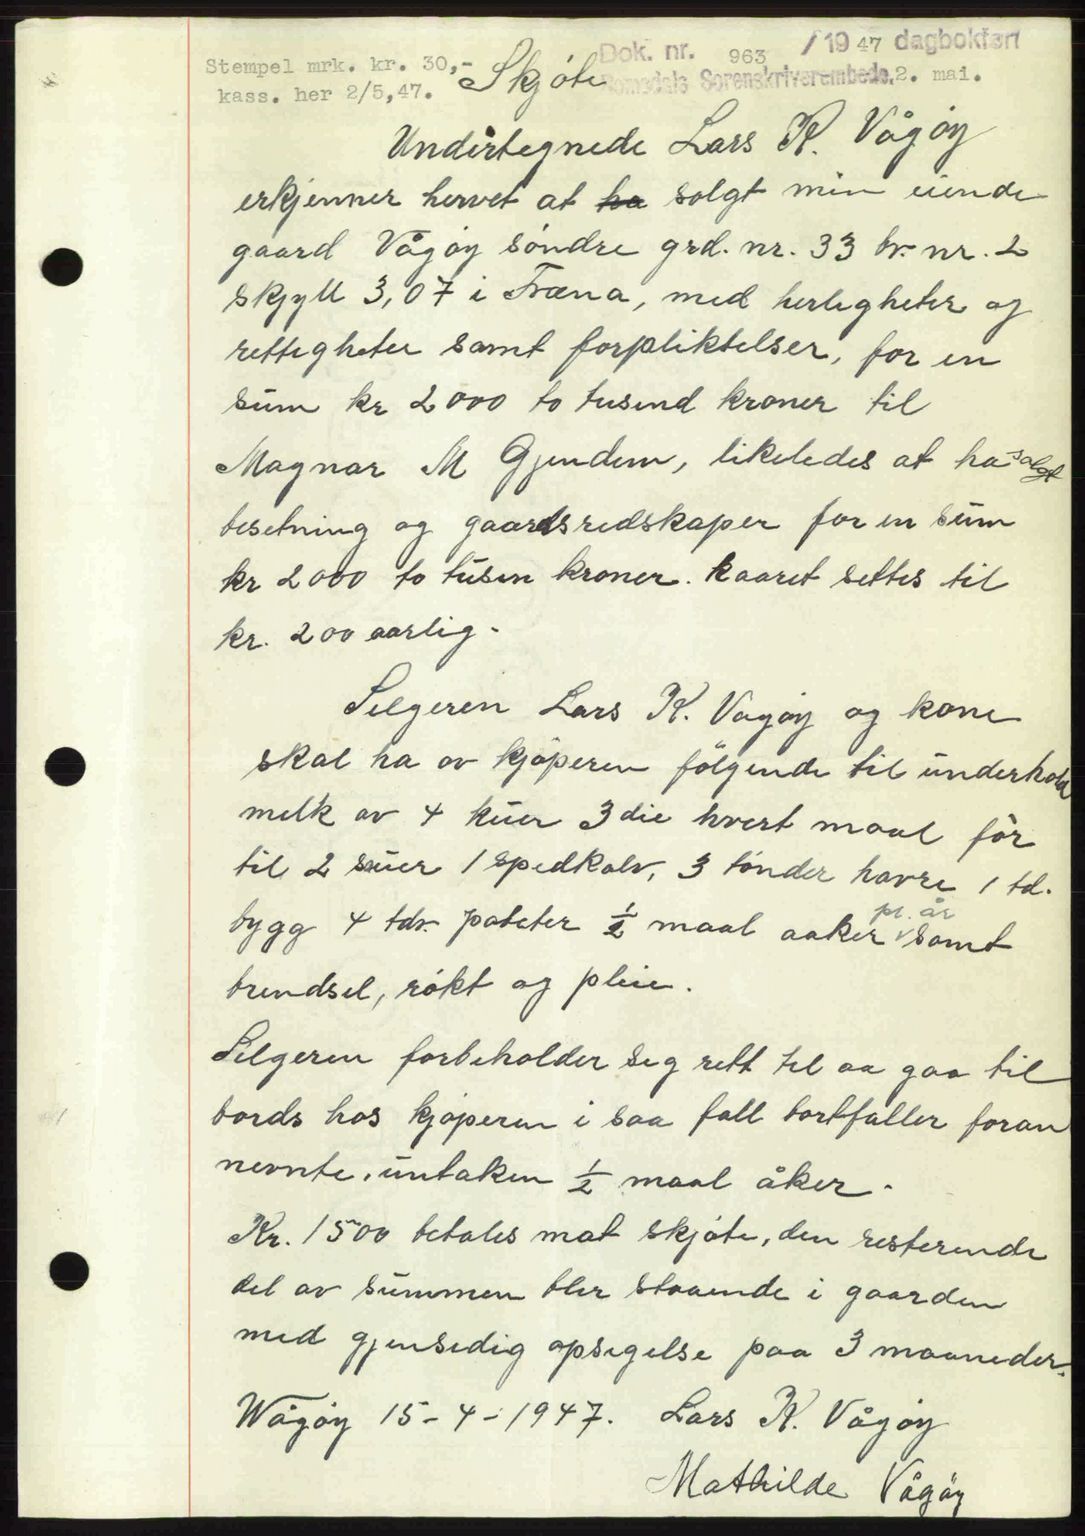 Dok. nr. 963 / 19 47 dagbokført
Stempel mrk. kr. 30,- Skjøte Romsdals Sorenskriverembede. 2. mai.
kass. her 2/5,47.
Undertegnede Lars K. Vågøy
erkjenner hervet at ha solgt min eiende
gaard Vågøy søndre grd. nr. 33 br. nr. 2
skjyll 3,07 i Fræna, med herligheter og
rettigheter samt forpliktelser, for en
sum kr 2000 to tusend kroner til
Magnar M Gjendem, likeledes at ha solgt
besetning og gaardsredskaper for en sum
kr 2000 to tusen kroner. kaaret settes til
kr. 200 aarlig.
Selgeren Lars K. Vagøy og kone
skal ha av kjøperen følgende til underhold
melk av 4 kuer 3die hvert maal fôr
til 2 suer 1 spedkalv, 3 tønder havre 1 td.
bygg 4 tdr. poteter ½ maal aaker pr. år samt
brendsel, røkt og pleie.
Selgeren forbeholder seg rett til aa gaa til
bords hos kjøperen i saa fall bortfaller foran
nevnte, untaken ½ maal åker.
Kr. 1500 betales mot skjøte, den resterende
del av summen blir staaende i gaarden
med gjensedig opsigelse paa 3 maaneder.
Wågøy 15-4-1947. Lars K. Vågøy
Mathilde Vågøy